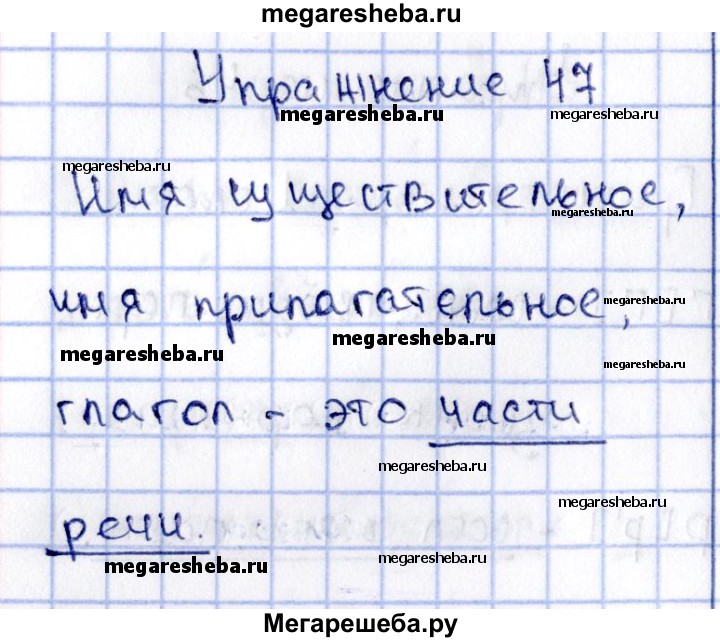 megaresheba.ru
Упражнение 47
megaresheba.ru
megaresheba.ru
megaresheba.ru
Имя существительное,
megaresheba.ru
имя прилагательное,
megaresheba.ru
megaresheba.ru
megaresheba.ru
megaresheba.ru
глагол - это части
megaresheba.ru
megaresheba.ru
речи.
megaresheba.ru
megaresheba.ru
Мегарешеба.ру